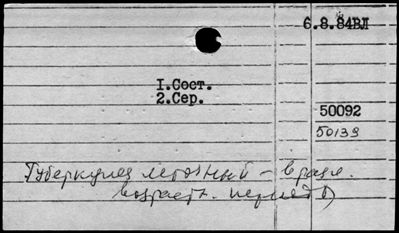 6.8.84ВЛ
1.Сост.
2.Сер.
50092
50139
Туберкулез легочный - в разл.
возрастн. периоды